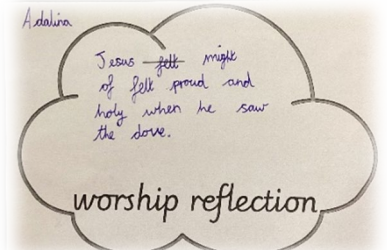 Adalina
Jesus felt might
of felt proud and
holy when he saw
the dove.
worship reflection